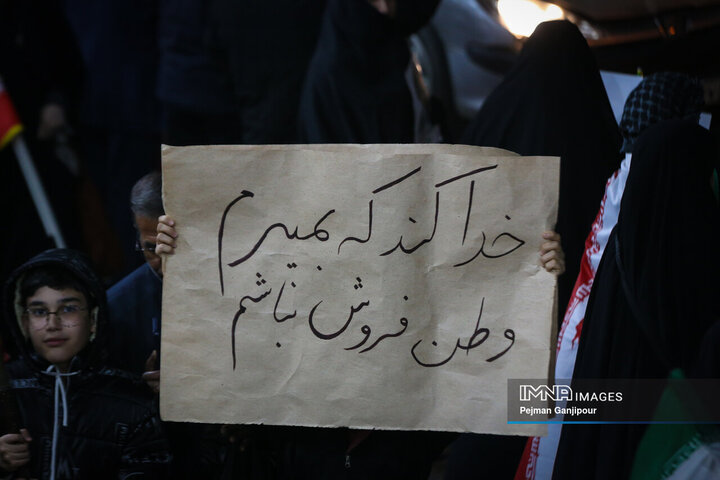 خدا کند که بمیرم
وطن فروش نباشم
IMNA IMAGES
Pejman Ganjipour